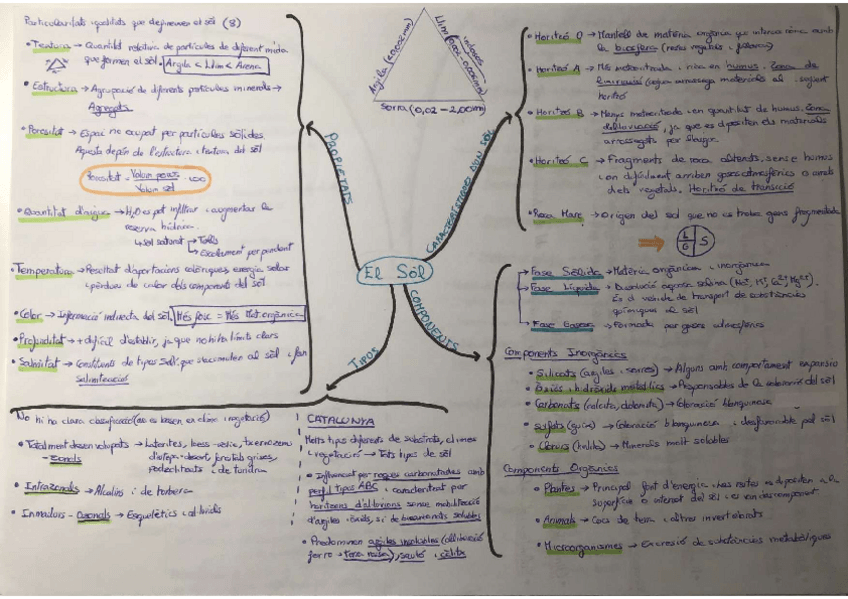 Particularitats i qualitats que defineixen el sòl (8)
• Textura → Quantitat relativa de partícules de diferent mida
que formen el sòl. Argila < Llim < Arena
• Estructura → Agrupació de diferents partícules minerals →
Agregats
• Porositat → Espai no ocupat per partícules sòlides
Aquesta depèn de l'estructura i textura del sòl
Porositat = Volum porus / Volum sòl · 100
• Quantitat d'aigua → H2O es pot infiltrar i augmentar la
reserva hídrica.
↳ Sòl saturat → Tolls
→ Escolament per pendent
• Temperatura → Resultat d'aportacions calòriques energia solar
i pèrdua de calor dels components del sòl
• Color → Informació indirecta del sòl. Més fosc = Més Mat. orgànica
• Profunditat → + difícil d'establir, ja que no hi ha límits clars
• Salinitat → Constituents de tipus salí, que s'acumulen al sòl i fan
salinització
PROPIETATS
Argila (<0,002mm)
Llim (0,002-0,02mm)
Sorra (0,02 - 2,00mm)
CARACTERÍSTIQUES D'UN SÒL
El Sòl
COMPONENTS
TIPUS
• Horitzó O → Mantell de matèria orgànica que interacciona amb
la biosfera (restes vegetals i
• Horitzó A → Més meteoritzada i rica en humus. Zona de
lixiviació (aigua arrossega materials al següent
horitzó
• Horitzó B → Menys meteoritzada i en quantitat de humus. Zona
d'iluviació, ja que es dipositen els materials
arrossegats per l'aigua.
• Horitzó C → Fragments de roca alterats, sense humus
i on difícilment arriben gasos atmosfèrics o arrels
dels vegetals. Horitzó de transició
• Roca Mare → Origen del sòl que no es troba gens fragmentada
L
G
S
Fase Sòlida → Matèria orgànica i inorgànica
Fase Líquida → Dissolució aquosa salina (Na+, K+, Ca2+, Mg2+).
És el vehicle de transport de substàncies
químiques al sòl
Fase Gasosa → Formada per gasos atmosfèrics
Components Inorgànics
• Silicats (argiles i sorres) → Alguns amb comportament expansiu
• Òxids i hidròxids metàl·lics → Responsables de la coloració del sòl
• Carbonats (calcita, dolomita) → Coloració blanquinosa
• Sulfats (guix) → Coloració blanquinosa i desfavorable pel sòl
• Clorurs (halita) → Minerals molt solubles
Components Orgànics
• Plantes → Principal font d'energia. Les restes es dipositen a la
superfície o interior del sòl i es van descomponent
• Animals → Cucs de terra i altres invertebrats
• Microorganismes → Excreció de substàncies metabòliques
No hi ha clara classificació (es basen en clima i vegetació)
• Totalment desenvolupats → Laterites, loess
- zonals
podzolitzats i de tundra
• Intrazonals → Alcalins i de torbera
• Inmadurs - Azonals → Esquelètics i al·luvials
CATALUNYA
Molts tipus diferents de substrats, climes
i vegetació → Tots tipus de sòl
• Influenciat per roques carbonatades amb
perfil tipus ABC i caracteritzat per
horitzons d'al·luvions sense mobilització
d'argiles i òxids, sí de bicarbonats solubles
• Predominen argiles insolubles (alliberació
ferro → terra rossa), sauló i